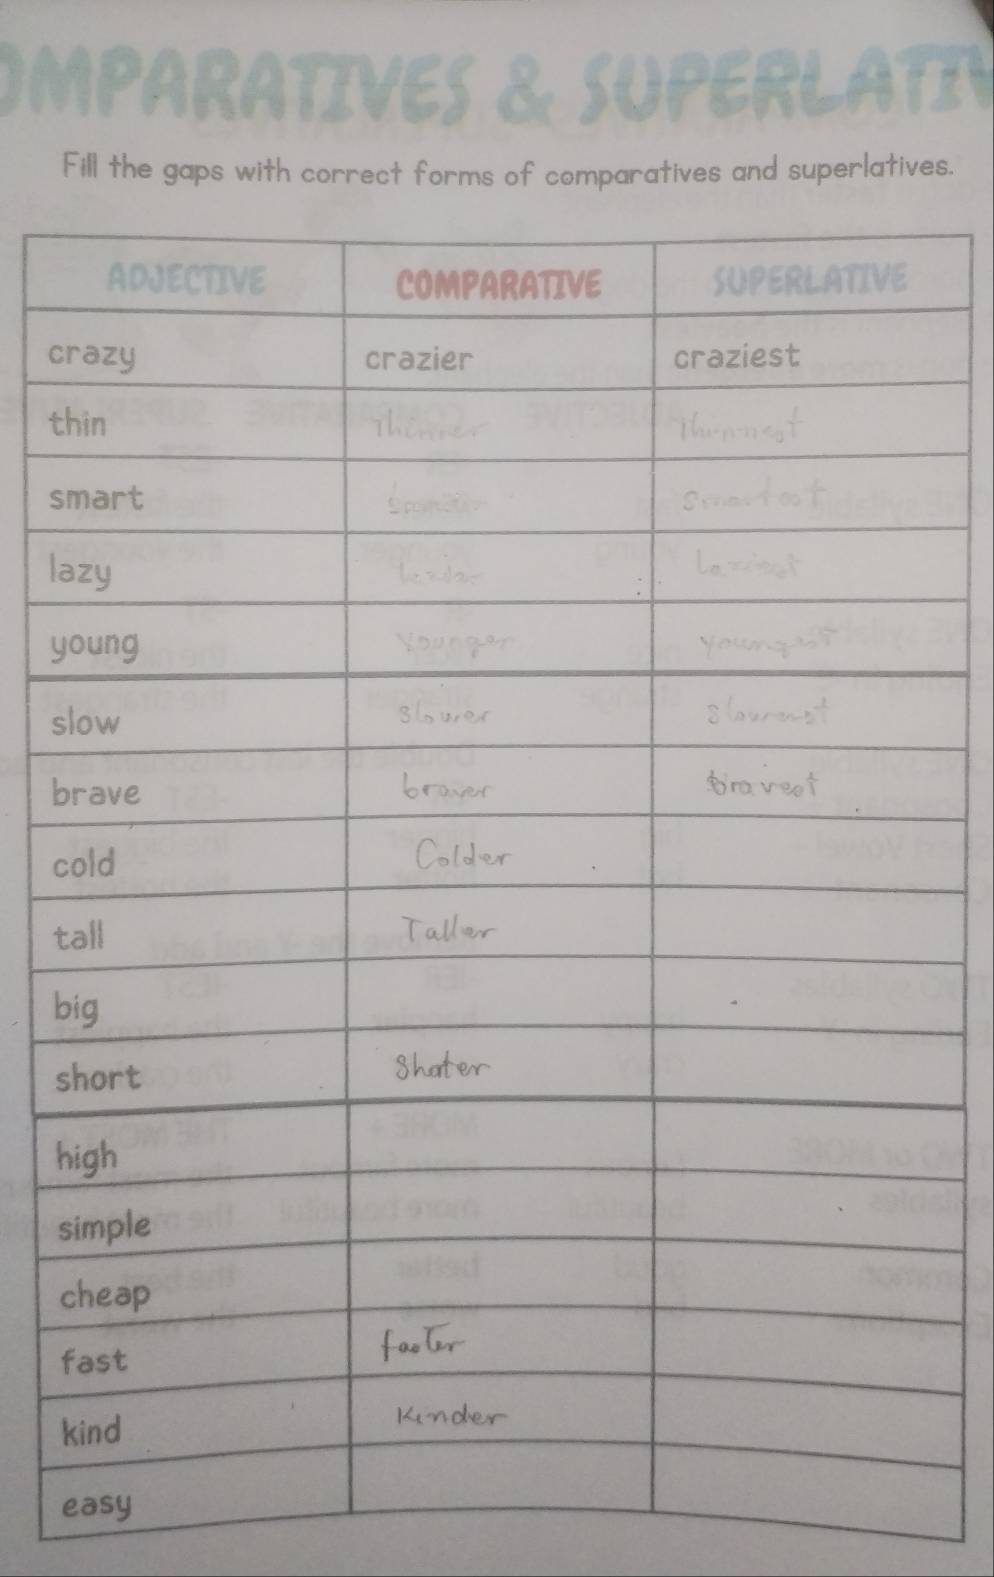 OMPARATIVES & SUPERLATIV
Fill the gaps with correct forms of comparatives and superlatives.
ADJECTIVE COMPARATIVE SUPERLATIVE
crazy crazier craziest
thin Thinner Thinnest
smart
lazy Laziest
young Younger youngest
slow Slower Slowest
brave braver bravest
cold Colder
tall Taller
big
short Shoter
high
simple
cheap
fast faster
kind Kinder
easy